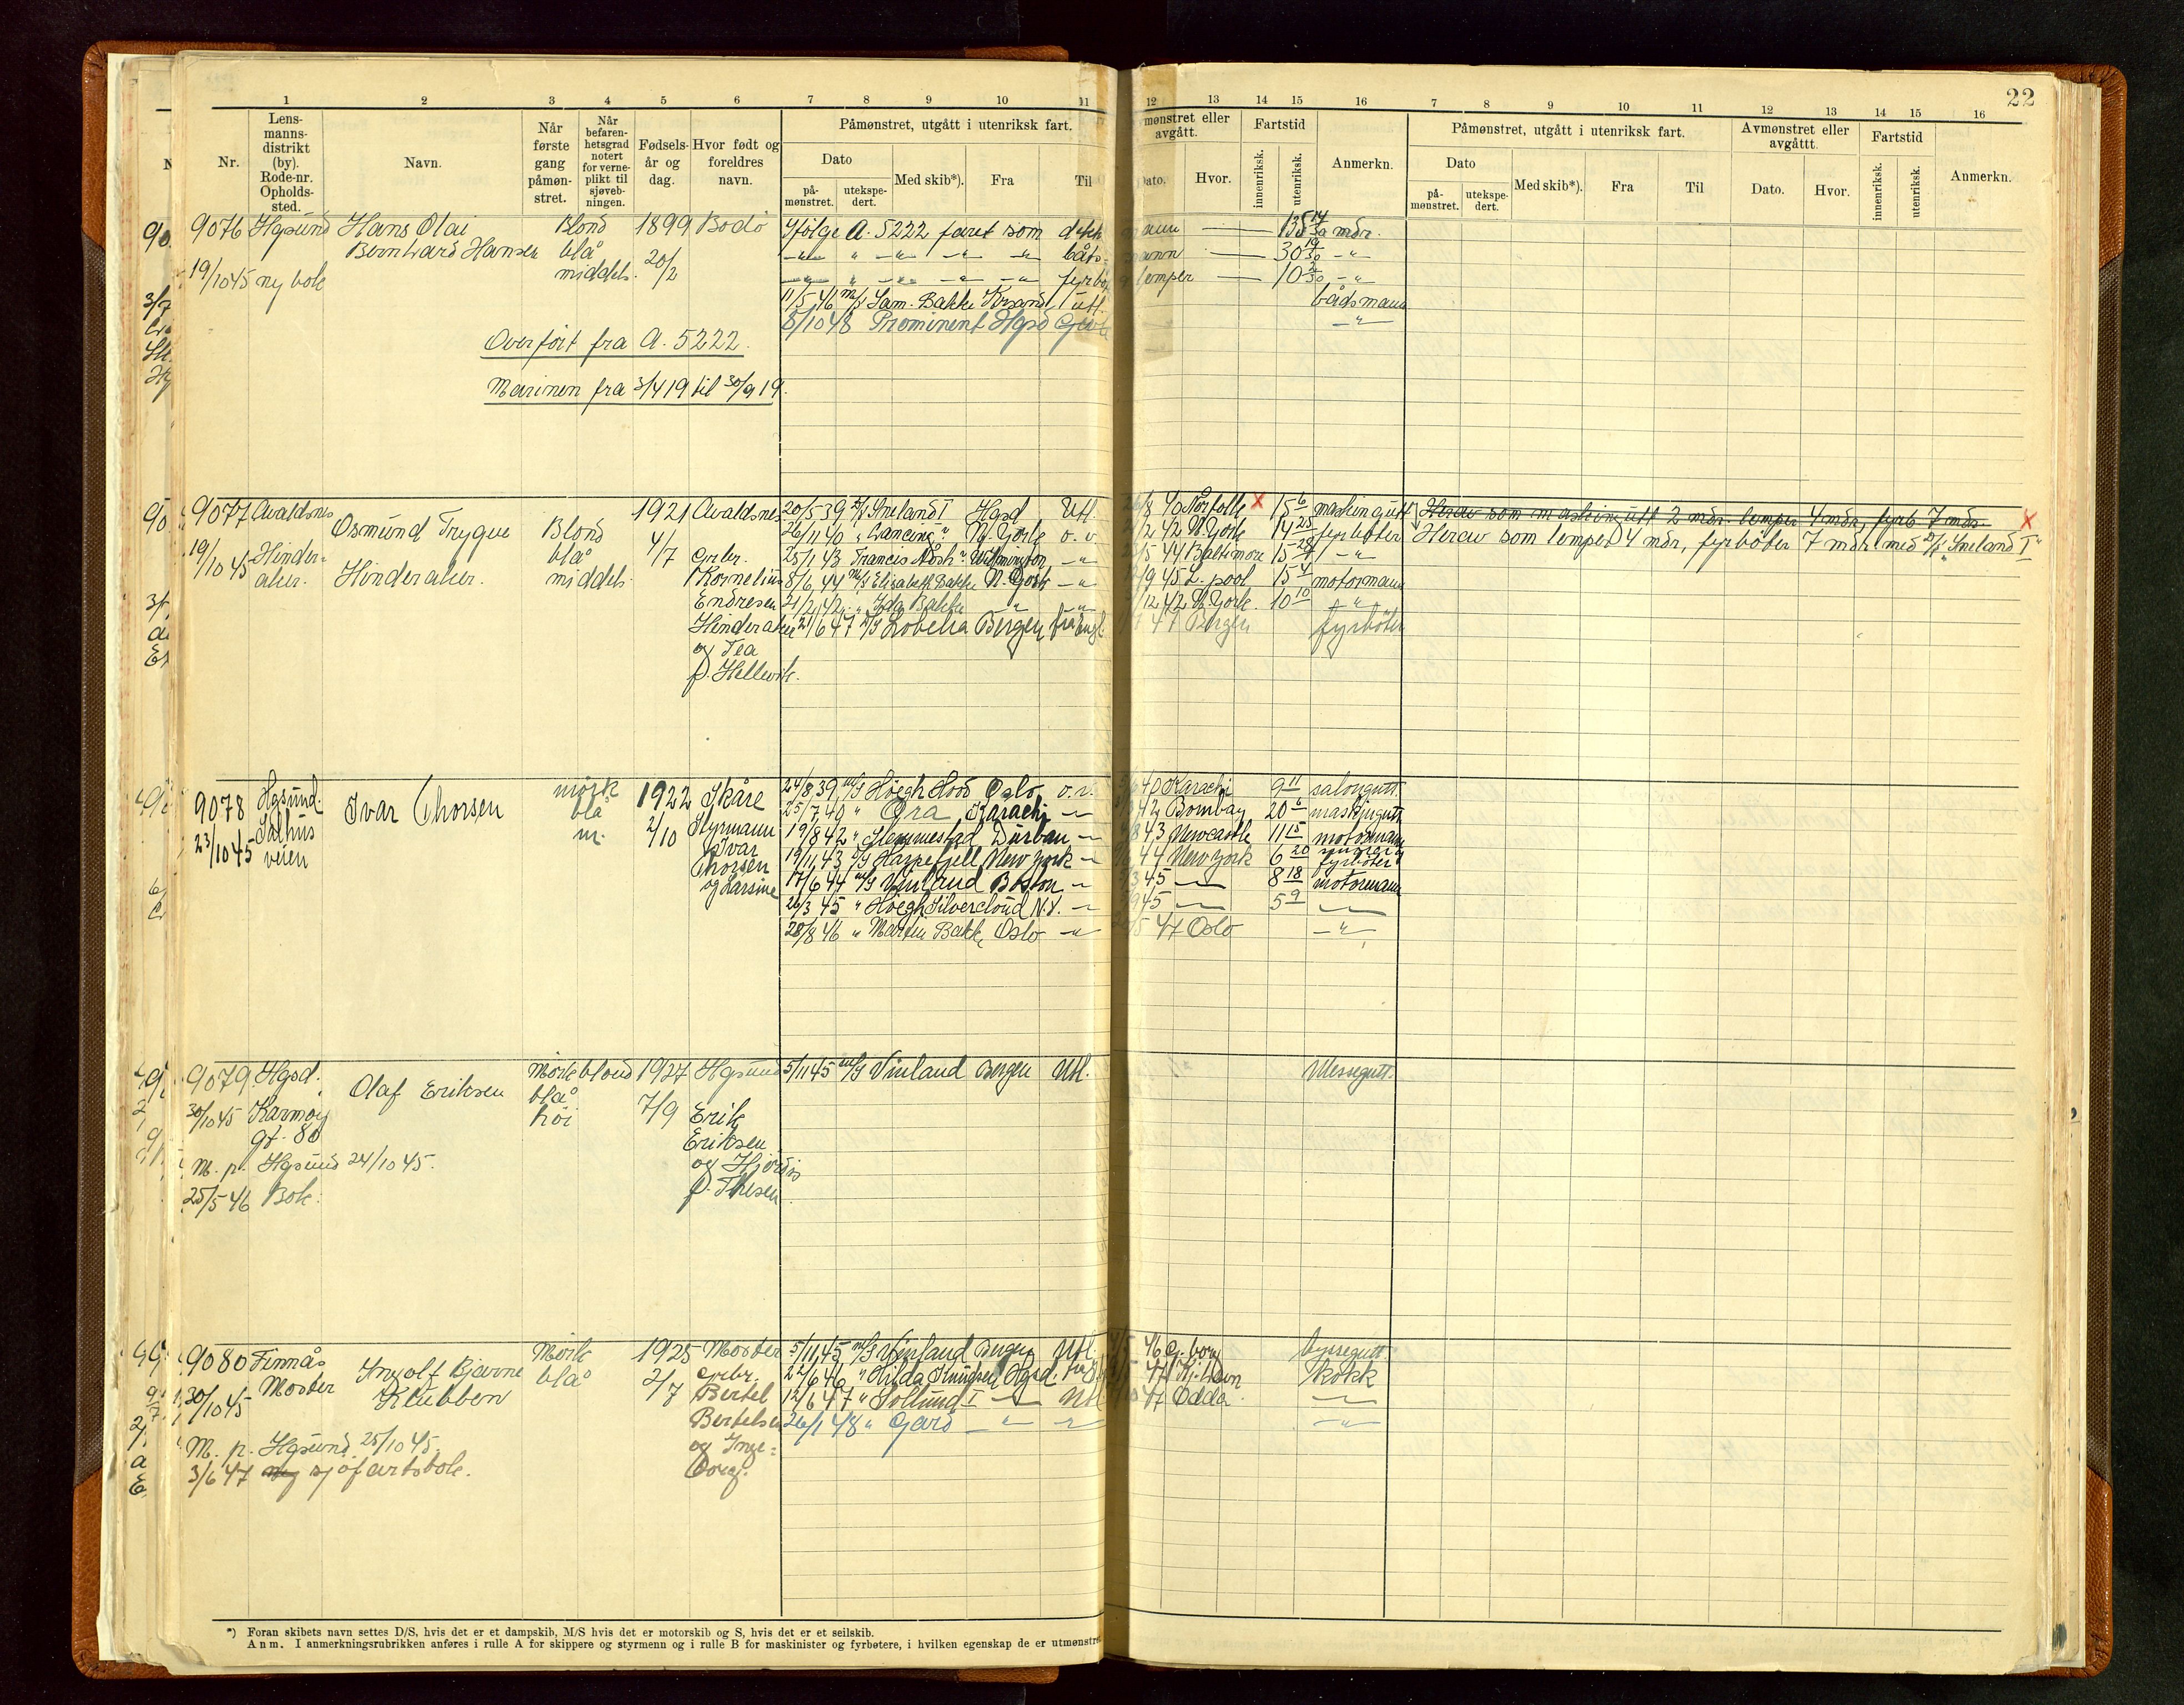 22
1 2 3 4 5 6 7 8 9 10 11 12 13 14 15 16 7 8 9 10 11 12 13 14 15 16
Nr. Lens-manns-distrikt (by). Rode-nr. Opholds-sted. Navn. Når første gang påmøn-stret. Når befaren-hetsgrad notert for verne-plikt til sjøveb-ningen. Fødsels-år og dag. Hvor født og foreldres navn.
Påmønstret, utgått i utenriksk fart. Dato på-mønstret. utekspe-dert. Med skib*). Fra Til
mønstret eller avgått. Dato. Hvor. Fartstid innenriksk. utenriksk. Anmerkn.
Påmønstret, utgått i utenriksk fart. Dato på-mønstret. utekspe-dert. Med skib*). Fra Til
Avmønstret eller avgåttt. Dato. Hvor. Fartstid innenriksk. utenriksk. Anmerkn.
9076 Hgsund Hans Olai Blond 1899 Bodø Ifølge A. 5222 faret som dekk mann — 135 14/30 mdr.
Bernhard Hansen blå 20/2 -"- " -"- -"- -"- båts- mann — 30 19/30 -"-
19/10 45 ny bok middels -"- " -"- -"- -"- fyrbø lemper — 10 2/30 -"-
11/5 46 m/s Sam. Bakke Krsand utl. båtsmann
8/10 48 Prominent Hgsd -"-
Overført fra A. 5222.
Marinen fra 3/4 19 til 30/9 19.
9077 Avaldsnes Osmund Trygve Blond 1921 Avaldsnes 20/5 39 D/S Sneland I Hgsd Utl. 40 Norfolk x 15 6 maskingutt Herav som maskingutt 2 mdr. lemper 4 mdr, fyrb 7 mdr. x
4/7 26/11 40 " Lancing " N. York o. v. 2 42 N. York 14 25 fyrbøter Herav som lemper 4 mdr, fyrbøter 7 mdr med D/S "Sneland I"
19/10 45 Hinder-aker. Hinderaker. blå Grbr. 25/1 43 Francis Nash " Wilmington -"- 5 44 Baltimore 15 -"-
middels. Kornelius 8/6 44 m/s Elisabeth Bakke N. York -"- 9 45 L. pool 15 4 motormann
Endresen 21/2 42 " Ida Bakke " -"- 12 42 N. York 10 10 -"-
Hinderaker 21/6 47 D/S Lobelia Bergen fra Engl 47 Bergen fyrbøter
og Tea
f. Hellevik.
9078 Hgsund. Ivar Thorsen mørk 1922 Skåre 24/8 39 m/s Høegh Hood Oslo o. v. 40 Karachi 9 11 salongutt
Salhus blå 2/10 Styrmann 25/7 40 " Ora Karachi -"- 42 Bombay 20 6 maskingutt
23/10 45 veien m. Ivar 19/8 42 " Hemmestad Durban -"- 8 43 Newcastle 11 15 motormann
Thorsen 19/11 43 D/S Harpefjell New York -"- 44 New York 6 20 fyrbøter
og Larsine 17/6 44 m/s Vinland Boston -"- 3 45 -"- 8 18 motormann
26/3 45 " Høegh Silvercloud N.Y. -"- 9 45 -"- 5 9 -"-
28/8 46 " Martin Bakke Oslo -"- 5 47 Oslo -"-
9079 Hgsd. Olaf Eriksen Mørk blond 1927 Hgsund 5/11 45 m/s Vinland Bergen Utl. Messegutt.
30/10 45 Karmøy blå 7/9 Erik
gt. 80 høi Eriksen
M. p. Hgsund 24/10 45. og Hjørdis
25/5 46 Bok. f. Thesen.
9080 Finnås Ingolf Bjarne Mørk 1925 Moster 5/11 45 m/s Vinland Bergen Utl. 46 G. borg byssegutt
Moster Klubben blå 2/7 Grbr. 22/6 46 " Hilda Knudsen Hgsd. 47 Kj. havn kokk
30/10 45 Bertel 12/6 47 " Sollund I -"- Utl 47 Odda -"-
Bertelsen 26/1 48 " Gard -"- -"- -"-
M. p. Hgsund 25/10 45. og Inge-
3/6 47 ny sjøfartsbok. borg.
*) Foran skibets navn settes D/S, hvis det er et dampskib, M/S hvis det er motorskib og S, hvis det er et seilskib.
Anm. I anmerkningsrubrikken anføres i rulle A for skippere og styrmenn og i rulle B for maskinister og fyrbøtere, i hvilken egenskap de er utmønstret